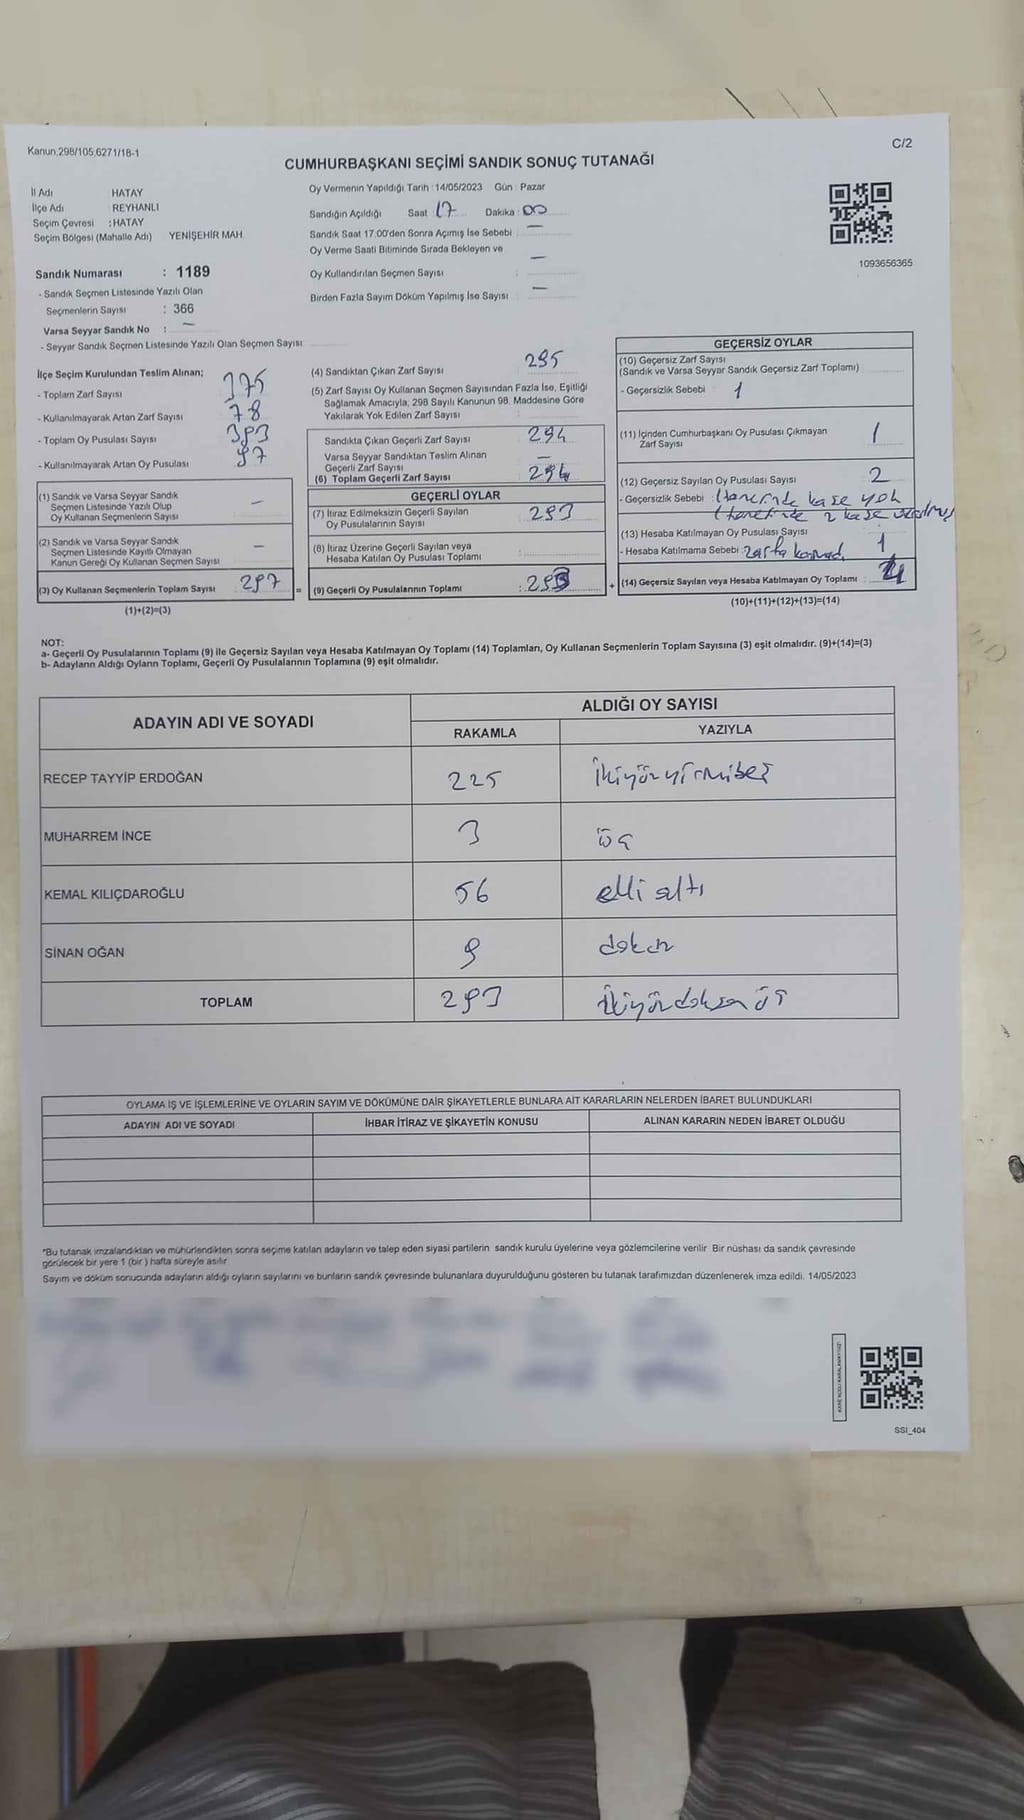 Kanun,298/105,6271/18-1
C/2
CUMHURBAŞKANI SEÇİMİ SANDIK SONUÇ TUTANAĞI
İl Adı HATAY
İlçe Adı REYHANLI
Seçim Çevresi :HATAY
Seçim Bölgesi (Mahalle Adı) YENİŞEHİR MAH.
Sandık Numarası : 1189
- Sandık Seçmen Listesinde Yazılı Olan
Seçmenlerin Sayısı : 366
Varsa Seyyar Sandık No : —
- Seyyar Sandık Seçmen Listesinde Yazılı Olan Seçmen Sayısı:
Oy Vermenin Yapıldığı Tarih :14/05/2023 Gün : Pazar
Sandığın Açıldığı Saat : 17 Dakika : 00
Sandık Saat 17.00'den Sonra Açımış İse Sebebi : —
Oy Verme Saati Bitiminde Sırada Bekleyen ve
Oy Kullandırılan Seçmen Sayısı : —
Birden Fazla Sayım Döküm Yapılmış İse Sayısı : —
1093656365
İlçe Seçim Kurulundan Teslim Alınan;
- Toplam Zarf Sayısı 375
- Kullanılmayarak Artan Zarf Sayısı 78
- Toplam Oy Pusulası Sayısı 383
- Kullanılmayarak Artan Oy Pusulası 87
(1) Sandık ve Varsa Seyyar Sandık
Seçmen Listesinde Yazılı Olup
Oy Kullanan Seçmenlerin Sayısı —
(2) Sandık ve Varsa Seyyar Sandık
Seçmen Listesinde Kayıtlı Olmayan
Kanun Gereği Oy Kullanan Seçmen Sayısı —
(3) Oy Kullanan Seçmenlerin Toplam Sayısı 297
(1)+(2)=(3)
=
(4) Sandıktan Çıkan Zarf Sayısı 295
(5) Zarf Sayısı Oy Kullanan Seçmen Sayısından Fazla İse, Eşitliği
Sağlamak Amacıyla, 298 Sayılı Kanunun 98. Maddesine Göre
Yakılarak Yok Edilen Zarf Sayısı :
Sandıkta Çıkan Geçerli Zarf Sayısı 294
Varsa Seyyar Sandıktan Teslim Alınan
Geçerli Zarf Sayısı —
(6) Toplam Geçerli Zarf Sayısı 294
GEÇERLİ OYLAR
(7) İtiraz Edilmeksizin Geçerli Sayılan
Oy Pusulalarının Sayısı 293
(8) İtiraz Üzerine Geçerli Sayılan veya
Hesaba Katılan Oy Pusulası Toplamı :
(9) Geçerli Oy Pusulalarının Toplamı : 293
+
GEÇERSİZ OYLAR
(10) Geçersiz Zarf Sayısı
(Sandık ve Varsa Seyyar Sandık Geçersiz Zarf Toplamı)
- Geçersizlik Sebebi : 1
(11) İçinden Cumhurbaşkanı Oy Pusulası Çıkmayan
Zarf Sayısı 1
(12) Geçersiz Sayılan Oy Pusulası Sayısı 2
- Geçersizlik Sebebi : 1 tanesinde kaşe yok
1 tanesinde 2 kaşe
(13) Hesaba Katılmayan Oy Pusulası Sayısı 1
- Hesaba Katılmama Sebebi :
(14) Geçersiz Sayılan veya Hesaba Katılmayan Oy Toplamı : 4
(10)+(11)+(12)+(13)=(14)
NOT:
a- Geçerli Oy Pusulalarının Toplamı (9) ile Geçersiz Sayılan veya Hesaba Katılmayan Oy Toplamı (14) Toplamları, Oy Kullanan Seçmenlerin Toplam Sayısına (3) eşit olmalıdır. (9)+(14)=(3)
b- Adayların Aldığı Oyların Toplamı, Geçerli Oy Pusulalarının Toplamına (9) eşit olmalıdır.
ADAYIN ADI VE SOYADI ALDIĞI OY SAYISI
RAKAMLA YAZIYLA
RECEP TAYYİP ERDOĞAN 225 ikiyüzyirmibeş
MUHARREM İNCE 3 üç
KEMAL KILIÇDAROĞLU 56 elli altı
SİNAN OĞAN 9 dokuz
TOPLAM 293 ikiyüzdoksan üç
OYLAMA İŞ VE İŞLEMLERİNE VE OYLARIN SAYIM VE DÖKÜMÜNE DAİR ŞİKAYETLERLE BUNLARA AİT KARARLARIN NELERDEN İBARET BULUNDUKLARI
ADAYIN ADI VE SOYADI İHBAR İTİRAZ VE ŞİKAYETİN KONUSU ALINAN KARARIN NEDEN İBARET OLDUĞU
*Bu tutanak imzalandıktan ve mühürlendikten sonra seçime katılan adayların ve talep eden siyasi partilerin sandık kurulu üyelerine veya gözlemcilerine verilir Bir nüshası da sandık çevresinde
görülecek bir yere 1 (bir ) hafta süreyle asılır
Sayım ve döküm sonucunda adayların aldığı oyların sayılarını ve bunların sandık çevresinde bulunanlara duyurulduğunu gösteren bu tutanak tarafımızdan düzenlenerek imza edildi. 14/05/2023
SSI_404